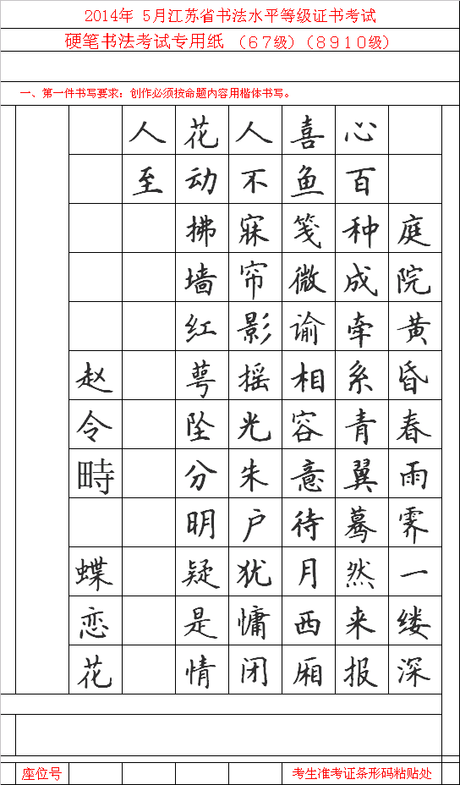 2014年 5月江苏省书法水平等级证书考试
硬笔书法考试专用纸 （67级）（8910级）
一、第一件书写要求：创作必须按命题内容用楷体书写。
庭院黄昏春雨霁一缕深
心百种成牵系青翼蓦然来报
喜鱼笺微谕相容意待月西厢
人不寐帘影摇光朱户犹慵闭
花动拂墙红萼坠分明疑是情
人至
赵令畤 蝶恋花
座位号
考生准考证条形码粘贴处